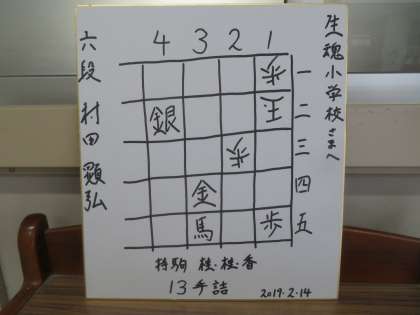 生魂小学校さまへ
4 3 2 1
歩 一
銀 王 二
歩 三
金 四
馬 歩 五
持駒 桂・桂・香
13手詰
2017.2.14
六段 村田顕弘